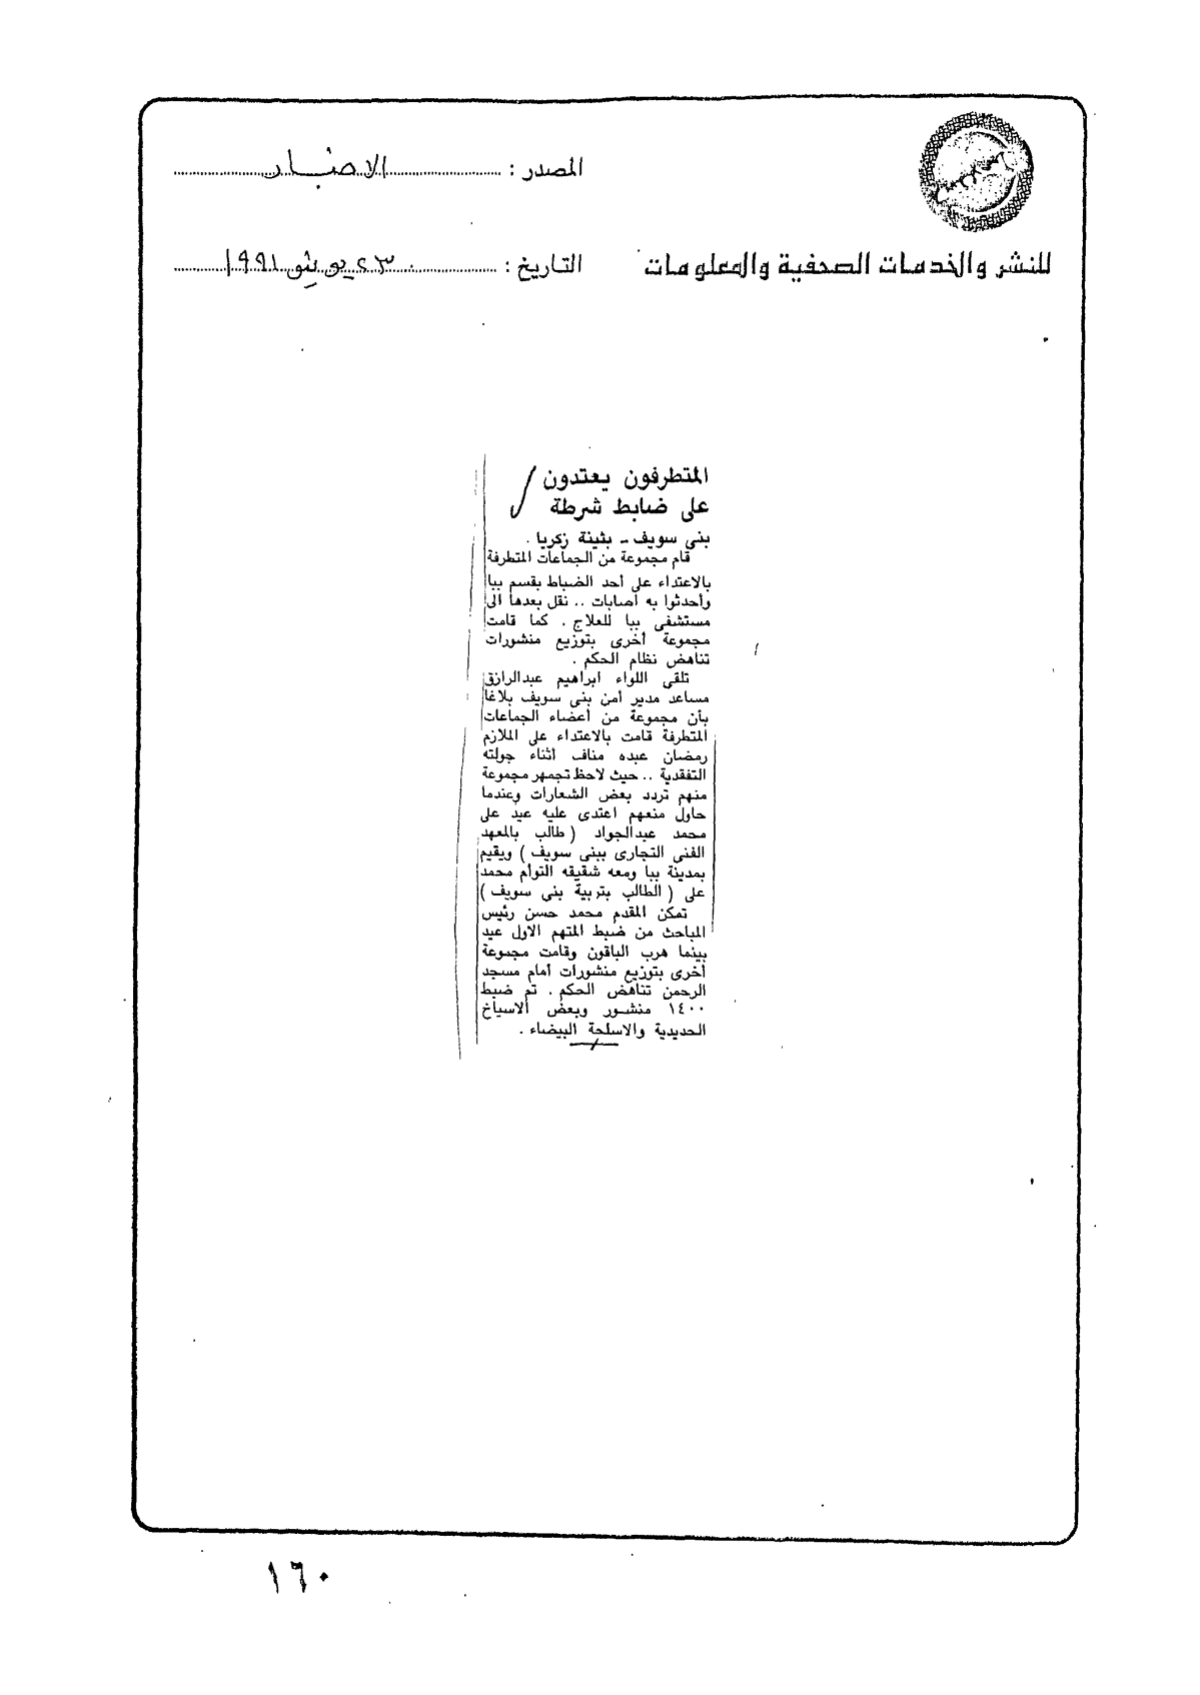 المصدر : الاخبار
للنشر والخدمات الصحفية والمعلومات
التاريخ : ٢٣ يونيو ١٩٩١
المتطرفون يعتدون
على ضابط شرطة
بنى سويف ـ بثينة زكريا .
قام مجموعة من الجماعات المتطرفة
بالاعتداء على أحد الضباط بقسم ببا
وأحدثوا به أصابات .. نقل بعدها الى
مستشفى ببا للعلاج . كما قامت
مجموعة أخرى بتوزيع منشورات
تناهض نظام الحكم .
تلقى اللواء ابراهيم عبدالرازق
مساعد مدير أمن بنى سويف بلاغا
بأن مجموعة من أعضاء الجماعات
المتطرفة قامت بالاعتداء على الملازم
رمضان عبده مناف أثناء جولته
التفقدية .. حيث لاحظ تجمهر مجموعة
منهم تردد بعض الشعارات وعندما
حاول منعهم اعتدى عليه عيد على
محمد عبدالجواد ( طالب بالمعهد
الفنى التجارى ببنى سويف ) ويقيم
بمدينة ببا ومعه شقيقه التوأم محمد
على ( الطالب بتربية بنى سويف )
تمكن المقدم محمد حسن رئيس
المباحث من ضبط المتهم الاول عيد
بينما هرب الباقون وقامت مجموعة
أخرى بتوزيع منشورات أمام مسجد
الرحمن تناهض الحكم . تم ضبط
١٤٠٠ منشور وبعض الاسياخ
الحديدية والاسلحة البيضاء .
١٦٠